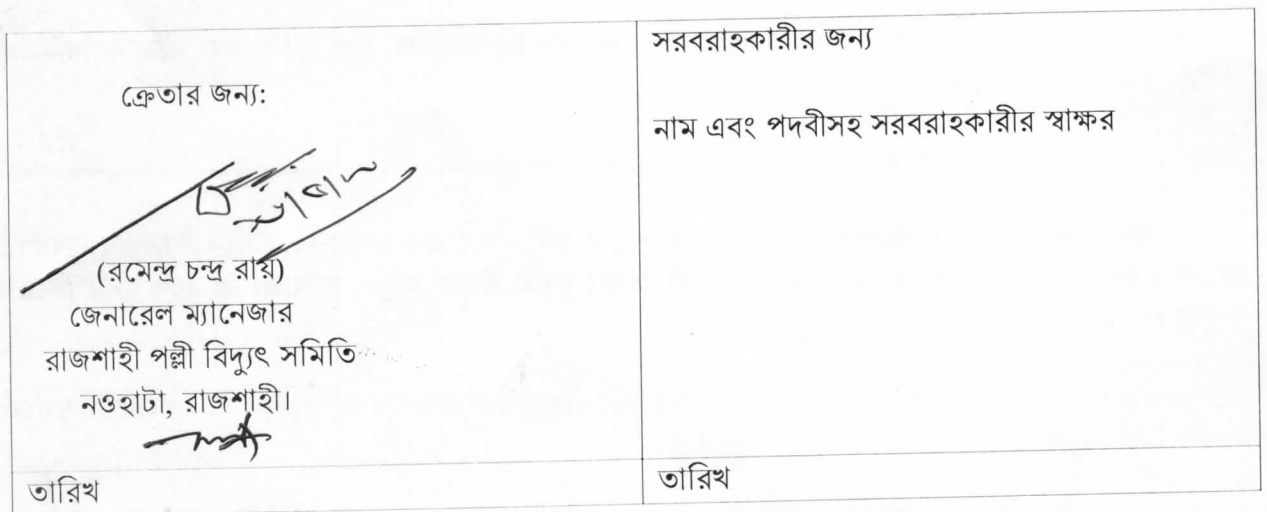 ক্রেতার জন্য:
(রমেন্দ্র চন্দ্র রায়)
জেনারেল ম্যানেজার
রাজশাহী পল্লী বিদ্যুৎ সমিতি
নওহাটা, রাজশাহী।
সরবরাহকারীর জন্য
নাম এবং পদবীসহ সরবরাহকারীর স্বাক্ষর
তারিখ
তারিখ